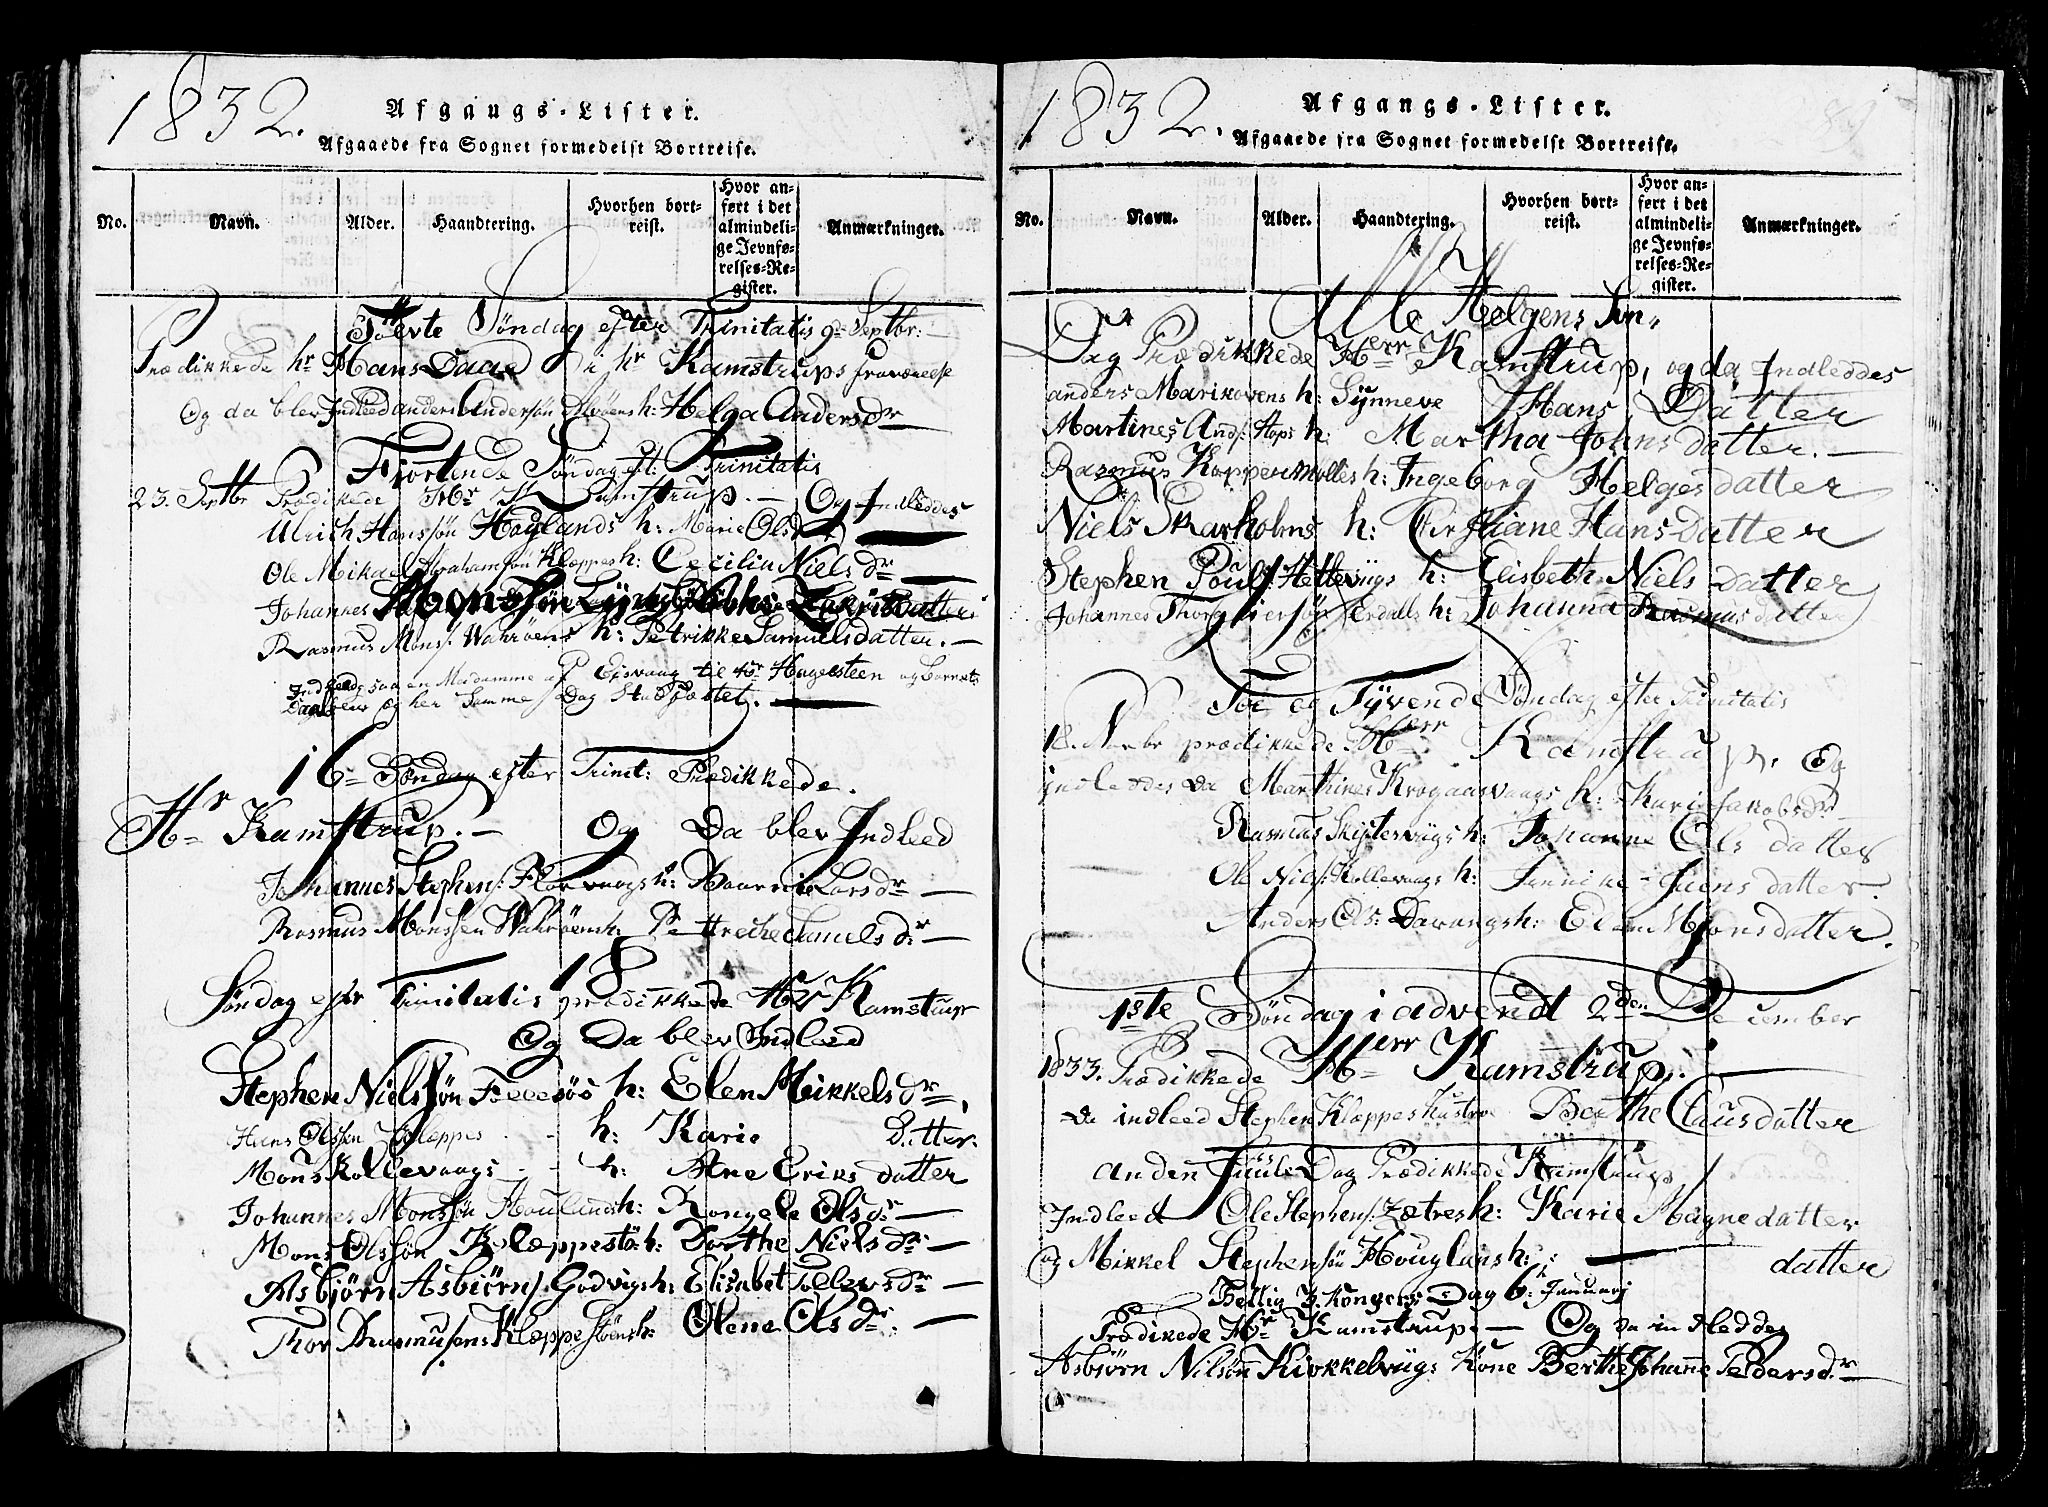 1832.
Afgangs-Lister.
Afgaaede fra Sognet formedelst Bortreise.
No.
Navn.
Alder.
Haandtering.
Hvorhen bort-
reist.
Hvor an-
ført i det
almindeli-
ge Jevnfø-
relses-Re-
gister.
Anmærkninger.
Søndag efter Trinitatis 9de Septbr:
Prædikkede hr Hans Daae i hr Kamstrups fraværelse
Og da blev Indleed anders Andersøn h: Helga Andersdr
Fjortende Søndag eft: Trinitatis
23. Septbr Prædikede Hr Kamstrup. — Og Indleddes
Ulrich Hanssøn Houglands h: Marie Olsdr
Ole Mikael Abrahamsøn Kleppes h: Cecilia Nielsdr
Johannes Monssøn
Rasmus Mons: Wahrøens h: Petrikke Samuelsdatter. —
en Madamme Eisvaag til Hr Hagelsteen og Barnets
Daab her Samme Dag Stadfæstet.
16de Søndag efter Trinit: Prædikkede.
Hr Kamstrup. — Og Da blev Indleed
Johannes Stephens: Florvaags h: Larsdr —
Rasmus Monssen Wahrøens h: Pettreche Samuelsdr —
18
Søndag eftr Trinitatis prædikkede Hr Kamstrup
Og Da blev Indleed
Stephen Nielssøn Follesøs h: Elen Mikkelsdr,
Hans Olssen Kleppes h: Karie Datter.
Mons Kollevaags h: Ane Eriks datter
Johannes Monssøn Houlands h: Rongele Olsdr —
Mons Olssøn Kleppestø h: Dorthe Nielsdr —
Asbjørn Asbiørns: Godvigs h: Elisabet Tollevsdr —
Thor Rasmusens Kleppestøens h: Olena Olsdr. —
1832.
Afgangs-Lister.
Afgaaede fra Sognet formedelst Bortreise.
No.
Navn.
Alder.
Haandtering.
Hvorhen bort-
reist.
Hvor an-
ført i det
almindeli-
ge Jevnfø-
relses-Re-
gister.
Anmærkninger.
Alle Helgens Søn-
Dag Prædikkede Herr Kamstrup, og da Indleddes
anders Marikovens h: Synneve Hans Datter
Martines Ands: Hops h: Martha Johnsdatter. —
Rasmus Koppermølles h: Ingeborg Helgesdatter
Niels Skarholms h: Hansdatter
Stephen Pouls: Hettevigs h: Elisbeth Niels datter
Johannes Thorgiersøn Erdalls h: Johanna Rasmusdatter
Toe og Tyvende Søndag efter Trinitatis
18. Novbr prædikkede Herr Kamstrup. Og
indleddes da Marthines Krogaasvaags h: Kari Jakobsdr
Rasmus Skiftesvigs h: Johanne Ols datter
Ole Nils: Kollevaags h: Jennike Juens datter.
Anders Ols: Davangs h: Elen Monsdatter.
1ste Søndag i advendt 2den December
1833. Prædikkede Herr Kamstrup. —
Da indleed Stephen Kleppes Hustroe Berthe Clausdatter
anden Juule Dag Prædikkede Kamstrup
Indleed Ole Stephens: Zetres h: Karie Magnedatter
og Mikkel Stephensøn Houglans h: — datter
Hellig 3. Kongers Dag 6te Januarj
Prædikede Hr Kamstrup. — Og da indleddes
Asbiørn Nilsøn Kirkkelvigs Kone Berthe Johanne Pedersdr —